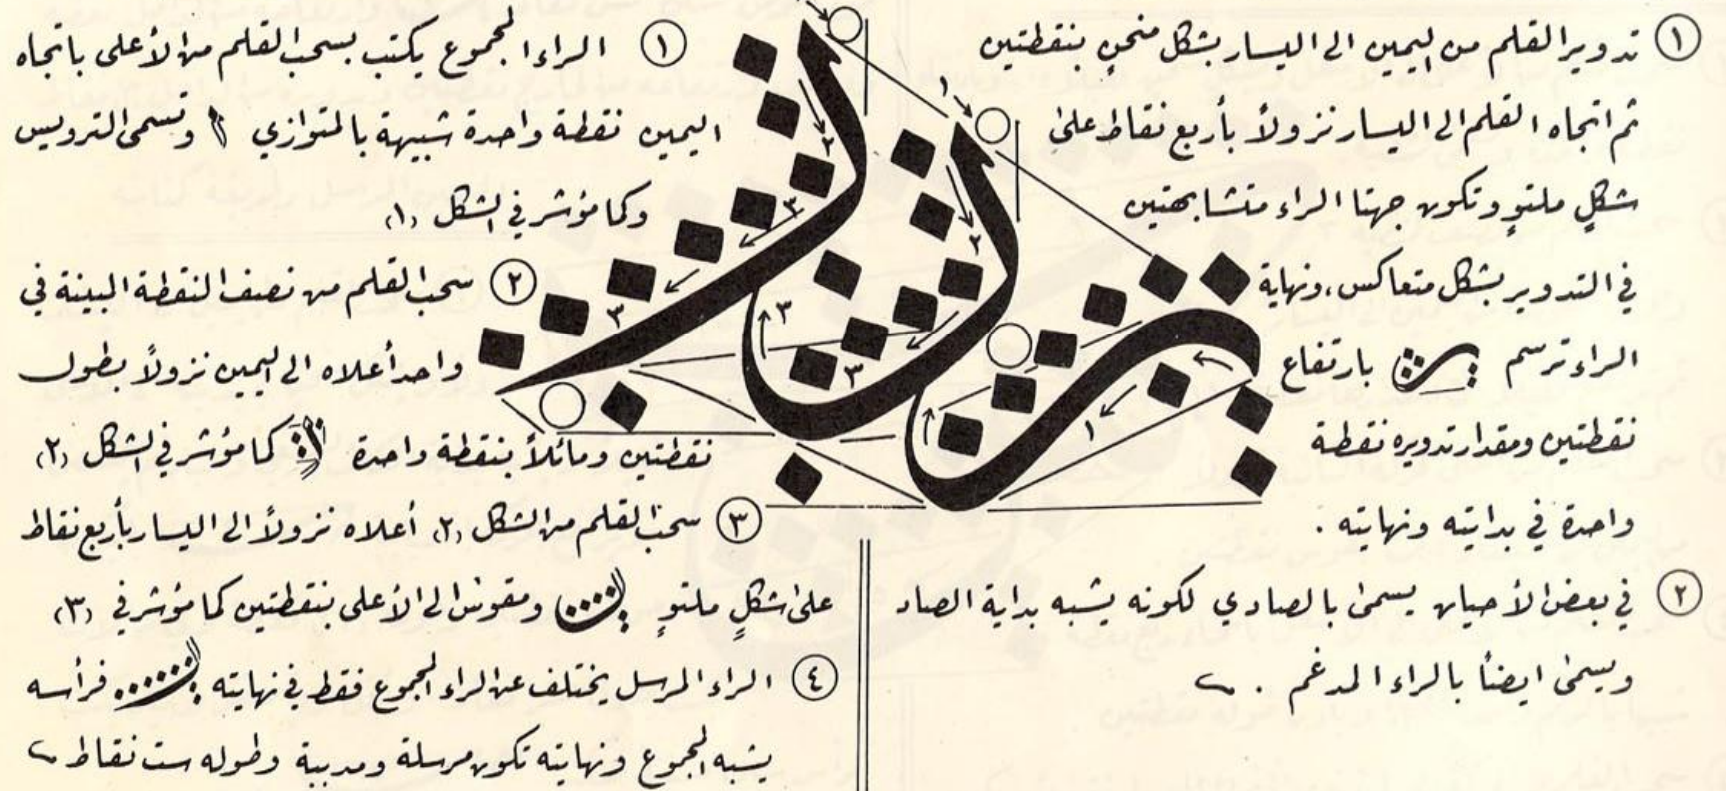 ١ تدوير القلم من اليمين الى اليسار بشكل منحنٍ بنقطتين
ثم اتجاه القلم الى اليسار نزولاً بأربع نقاط على
شكلٍ ملتوٍ وتكون جهتا الراء متشابهتين
في التدوير بشكل متعاكس، ونهاية
الراء ترسم بارتفاع
نقطتين ومقدار تدويره نقطة
واحدة في بدايته ونهايته .
٢ في بعض الأحيان يسمى بالصادي لكونه يشبه بداية الصاد
ويسمى ايضاً بالراء المدغم .
١ الراء المجموع يكتب بسحب القلم من الأعلى باتجاه
اليمين نقطة واحدة شبيهة بالمتوازي وتسمى الترويس
وكما مؤشر في الشكل (١)
٢ سحب القلم من نصف النقطة المبينة في
واحد أعلاه الى اليمين نزولاً بطول
نقطتين ومائلاً بنقطة واحدة كما مؤشر في الشكل (٢)
٣ سحب القلم من الشكل (٢) أعلاه نزولاً الى اليسار بأربع نقاط
على شكلٍ ملتوٍ ومقوس الى الأعلى بنقطتين كما مؤشر في (٣)
٤ الراء المرسل يختلف عن الراء المجموع فقط في نهايته فرأسه
يشبه المجموع ونهايته تكون مرسلة ومدببة وطوله ست نقاط
١
٢
٣
٣
٢
٣
٣
١